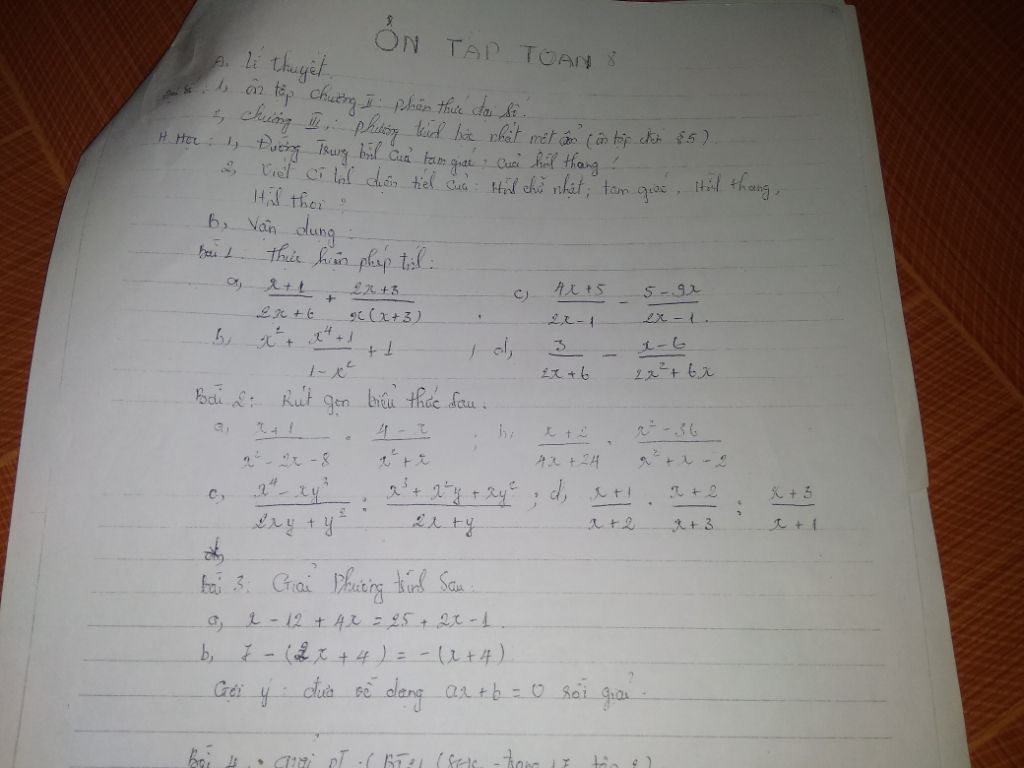 ÔN TẬP TOÁN 8
A. Lí thuyết
1, ôn tập chương II: phân thức đại số.
2, chương III: phương trình bậc nhất một ẩn (ôn tập đến §5).
H. Học: 1, Đường Trung bình của tam giác, của hình thang!
2, Viết CT tính diện tích của: Hình chữ nhật; tam giác, Hình thang,
Hình thoi?
B, Vận dụng:
Bài 1: Thực hiện phép tính:
a, (x+1)/(2x+6) + (2x+3)/(x(x+3)) . c, (4x+5)/(2x-1) - (5-9x)/(2x-1).
b, x² + (x⁴+1)/(1-x²) + 1 ; d, 3/(2x+6) - (x-6)/(2x²+6x)
Bài 2: Rút gọn biểu thức sau.
a, (x+1)/(x²-2x-8) . (4-x)/(x²+x) ; b, (x+2)/(4x+24) . (x²-36)/(x²+x-2)
c, (x⁴-xy³)/(2xy+y²) : (x³+x²y+xy²)/(2x+y) ; d, (x+1)/(x+2) . (x+2)/(x+3) : (x+3)/(x+1)
Bài 3: Giải Phương trình Sau:
a, x-12+4x=25+2x-1.
b, 7-(2x+4)=-(x+4)
Gợi ý: đưa về dạng ax+b=0 rồi giải.
Bài 4: Giải